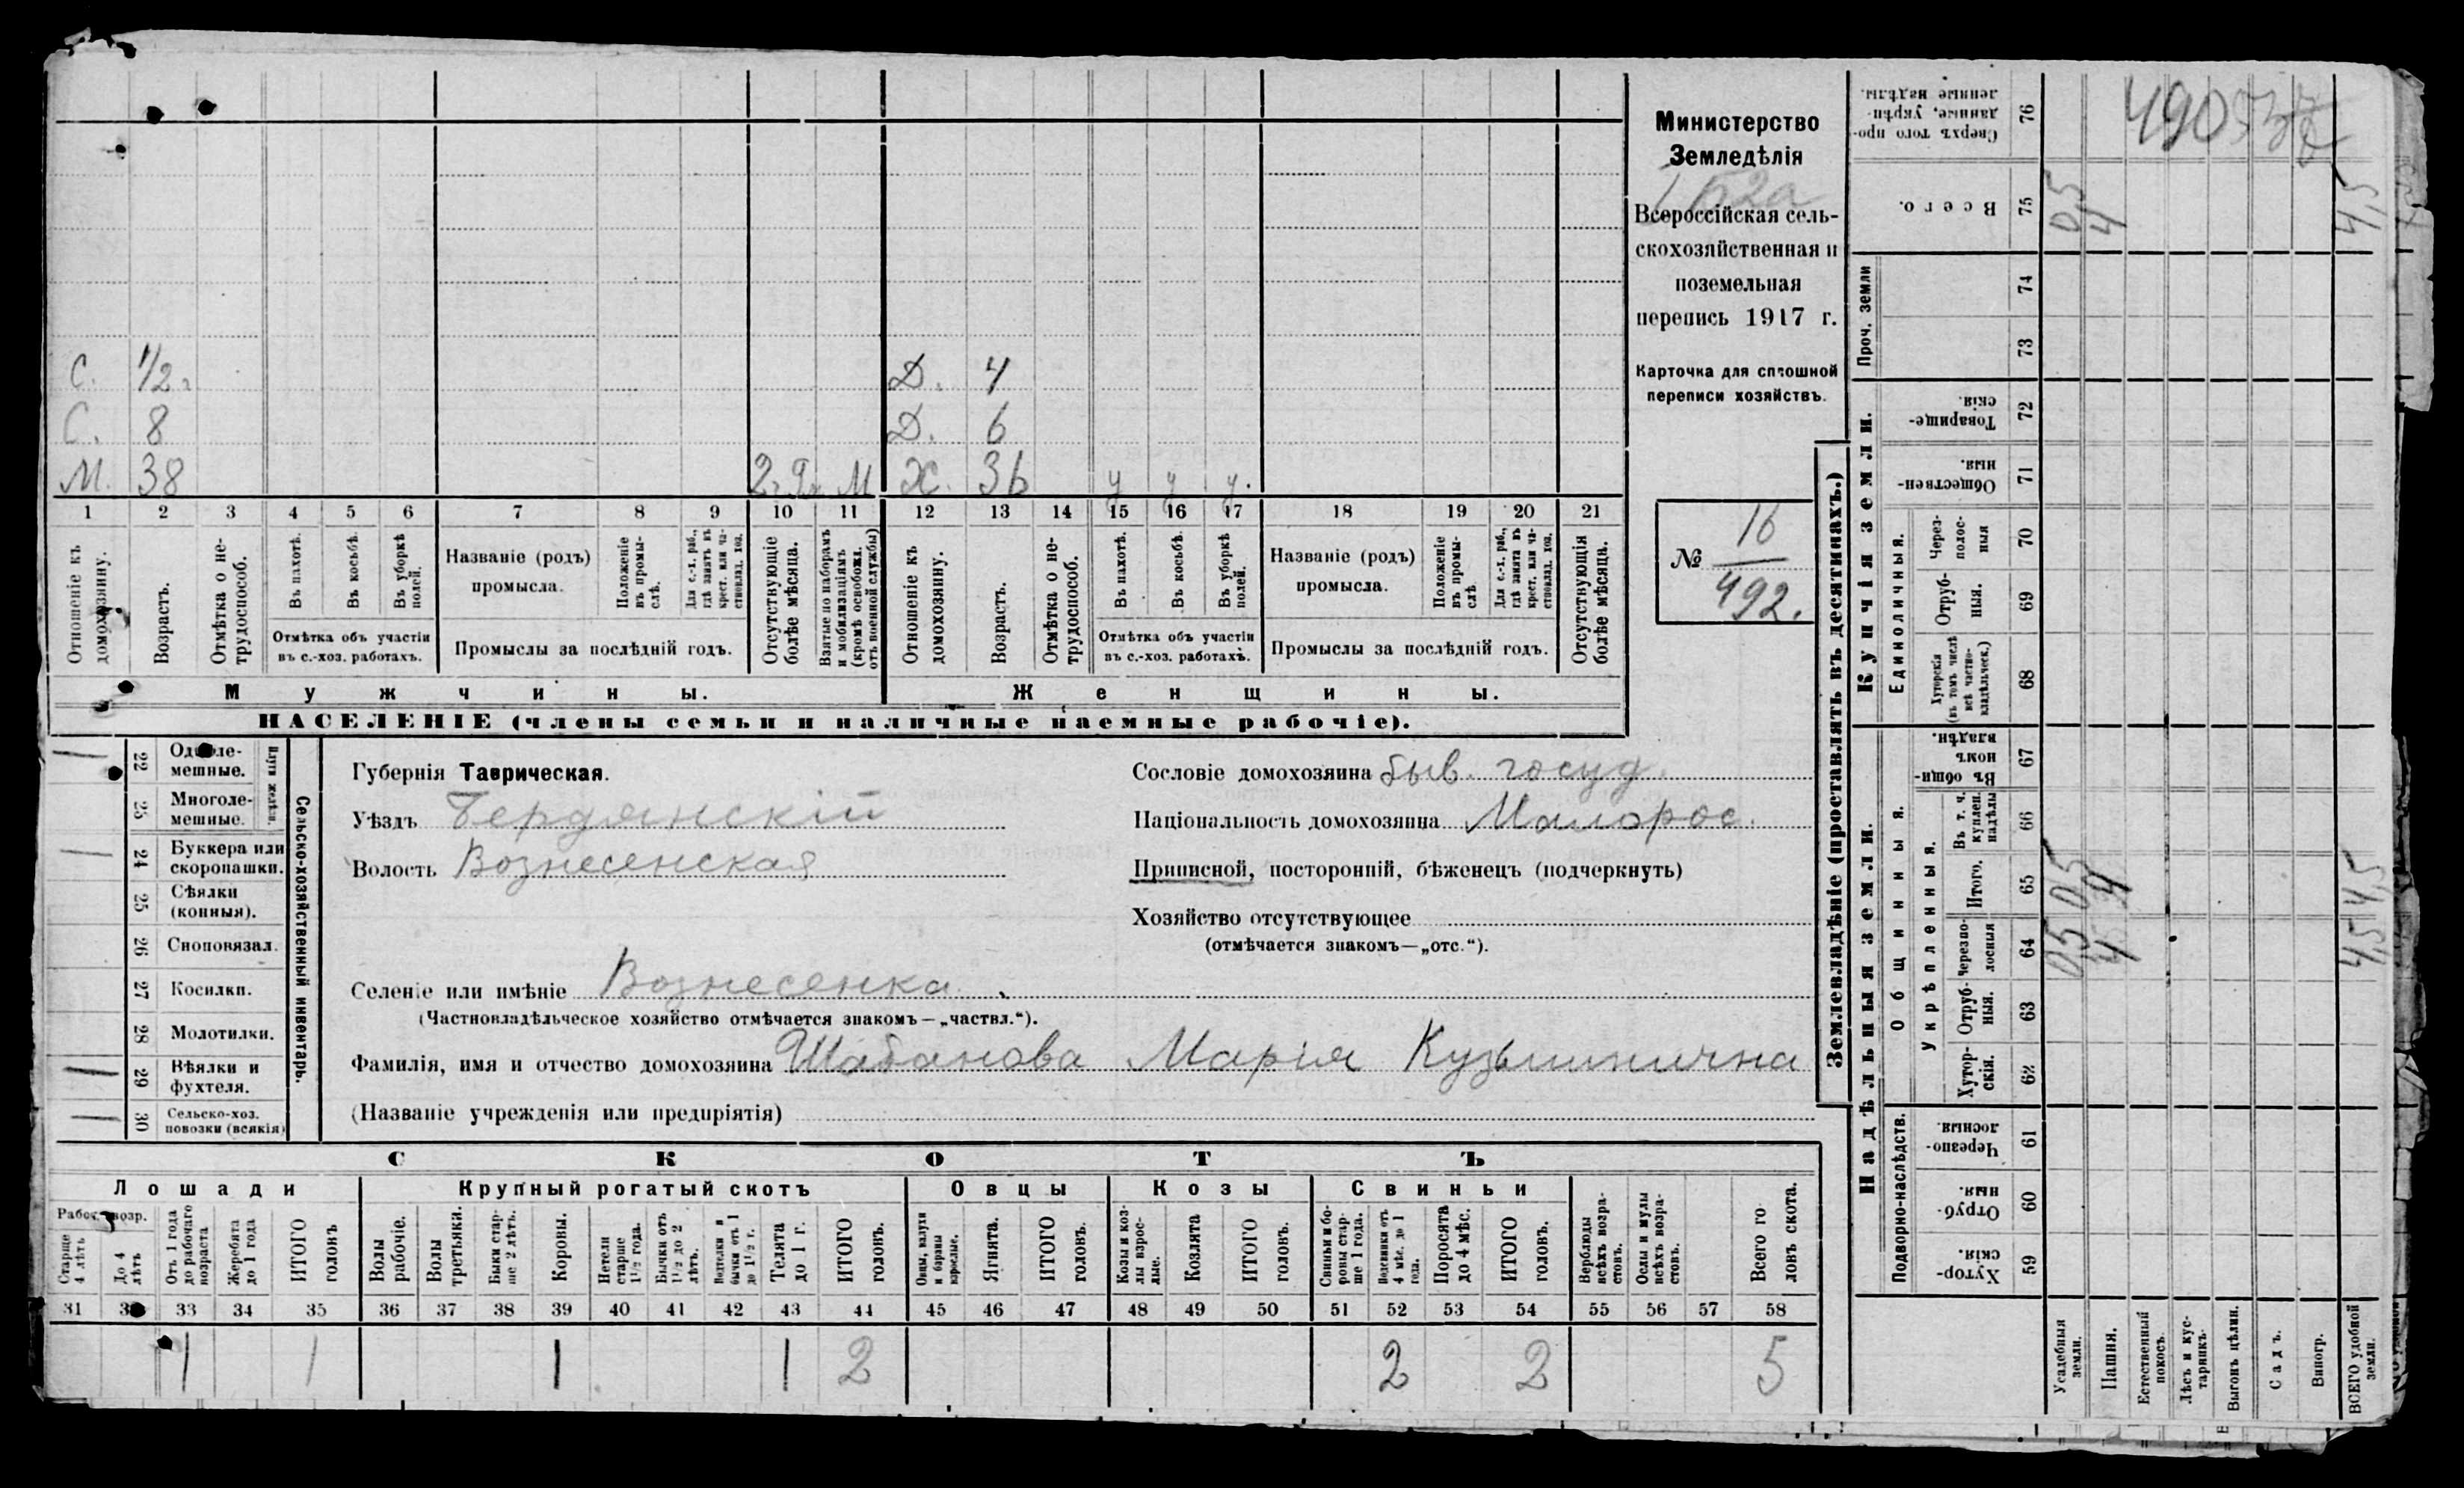 Министерство
Земледѣлія
152а
Всероссійская сель-
скохозяйственная и
поземельная
перепись 1917 г.
Карточка для сплошной
переписи хозяйствъ.
№ 16
492.
С. 1/2 г. Д. 4
С. 8 Д. 6
М. 38 2 г. М Х. 36 у у у.
1 2 3 4 5 6 7 8 9 10 11 12 13 14 15 16 17 18 19 20 21
Отношеніе къ домохозяину.
Возрастъ.
Отмѣтка о не-трудоспособ.
Въ пахотѣ.
Въ косьбѣ.
Въ уборкѣ полей.
Отмѣтка объ участіи
въ с.-хоз. работахъ.
Названіе (родъ)
промысла.
Положеніе въ промы-слѣ.
Для с.-х. раб., гдѣ занятъ въ крест. или ча-стновлад. хоз.
Промыслы за послѣдній годъ.
Отсутствующіе болѣе мѣсяца.
Взятые по наборамъ и мобилизаціямъ (кромѣ освобожд. отъ военной службы)
Отношеніе къ домохозяину.
Возрастъ.
Отмѣтка о не-трудоспособ.
Въ пахотѣ.
Въ косьбѣ.
Въ уборкѣ полей.
Отмѣтка объ участіи
въ с.-хоз. работахъ.
Названіе (родъ)
промысла.
Положеніе въ промы-слѣ
Для с.-х. раб., гдѣ занята въ крест. или ча-стновлад. хоз.
Промыслы за послѣдній годъ.
Отсутствующія болѣе мѣсяца.
Мужчины. Женщины.
НАСЕЛЕНІЕ (члены семьи и наличные наемные рабочіе).
Сельско-хозяйственный инвентарь.
Плуги желѣзн.
22 Одноле-
мешные.
23 Многоле-
мешные.
24 Буккера или
скоропашки.
25 Сѣялки
(конныя).
26 Сноповязал.
27 Косилки.
28 Молотилки.
29 Вѣялки и
фухтеля.
30 Сельско-хоз.
повозки (всякія)
Губернія Таврическая.
Уѣздъ Бердянскій
Волость Вознесенская
Сословіе домохозяина быв. госуд.
Національность домохозяина Малорос.
Приписной, посторонній, бѣженецъ (подчеркнуть)
Хозяйство отсутствующее
(отмѣчается знакомъ—„отс.“).
Селеніе или имѣніе Вознесенка.
(Частновладѣльческое хозяйство отмѣчается знакомъ—„частвл.“).
Фамилія, имя и отчество домохозяина Шабанова Марія Кузьминична
(Названіе учрежденія или предпріятія)
СКОТЪ
Лошади Крупный рогатый скотъ Овцы Козы Свиньи
Рабоч. возр.
Старше 4 лѣтъ
До 4 лѣтъ
Отъ 1 года до рабочаго возраста
Жеребята до 1 года
ИТОГО головъ
Волы рабочіе.
Волы третьяки.
Быки стар-ше 2 лѣтъ.
Коровы.
Нетели старше 1½ года.
Бычки отъ 1½ до 2 лѣтъ.
Подтелки и бычки отъ 1 до 1½ г.
Телята до 1 г.
ИТОГО головъ.
Овцы, валухи и бараны взрослые.
Ягнята.
ИТОГО головъ.
Козы и коз-лы взрос-лые.
Козлята
ИТОГО головъ.
Свиньи и бо-ровы стар-ше 1 года.
Подсвинки отъ 4 мѣс. до 1 года.
Поросята до 4 мѣс.
ИТОГО головъ.
Верблюды всѣхъ возра-стовъ.
Ослы и мулы всѣхъ возра-стовъ.
Всего го-ловъ скота.
31 32 33 34 35 36 37 38 39 40 41 42 43 44 45 46 47 48 49 50 51 52 53 54 55 56 57 58
1 1 1 1 2 2 2 5
Землевладѣніе (проставлять въ десятинахъ.)
Надѣльныя земли.
Купчія земли.
Проч. земли
Подворно-наслѣдств.
Общинныя.
Укрѣпленныя.
Единоличныя.
Сверхъ того про-данные, укрѣп-ленные надѣлы. 76
Всего. 75
74
73
Товарище-скія. 72
Обществен-ныя. 71
Через-полос-ныя 70
Отруб-ныя. 69
Хуторскія (въ томъ числѣ всѣ частно-владѣльческ.) 68
Въ общин-номъ владѣн. 67
Въ т. ч. куплен. надѣлы 66
Итого. 65
Черезпо-лосныя 64
Отруб-ныя. 63
Хутор-скія. 62
Черезпо-лосныя. 61
Отруб-ныя. 60
Хутор-скія. 59
Усадебныя земли.
Пашня.
Естественный покосъ.
Лѣсъ и кус-тарникъ.
Выгонъ цѣлин.
Садъ.
Виногр.
ВСЕГО удобной земли.
490
05 4 4,5
05 4 4,5
05 4 4,5